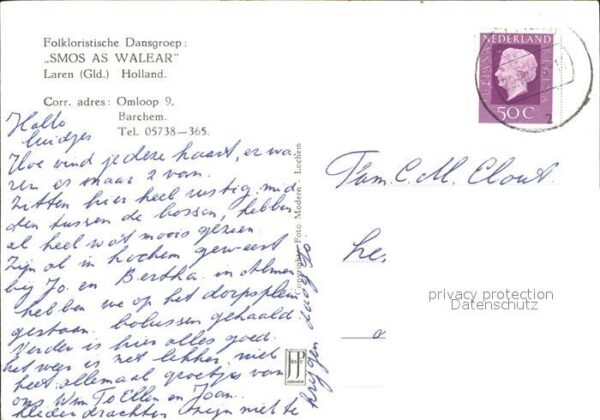 Folkloristische Dansgroep:
„SMOS AS WALEAR"
Laren (Gld.) Holland.
Corr. adres: Omloop 9,
Barchem.
Tel. 05738—365.
Hallo
luidjes
Hoe vind je deze kaart, er wa-
ren er maar 2 van.
Zitten hier heel rustig mid-
den tussen de bossen, hebben
al heel wat moois gezien.
Zijn al in Lochem geweest
bij Jo. en Bertha. in Almen
hebben we op het dorpsplein
gestaan. bolussen gehaald
Verder is hier alles goed.
het weer is niet lekker, niet
heet. allemaal groetjes van
ons Wim To Ellen en Joan.
klederdrachten zijn niet te
krijgen
Foto Modern - Lochem
NEDERLAND
50 C
Fam. C. M. Clout.
privacy protection
Datenschutz